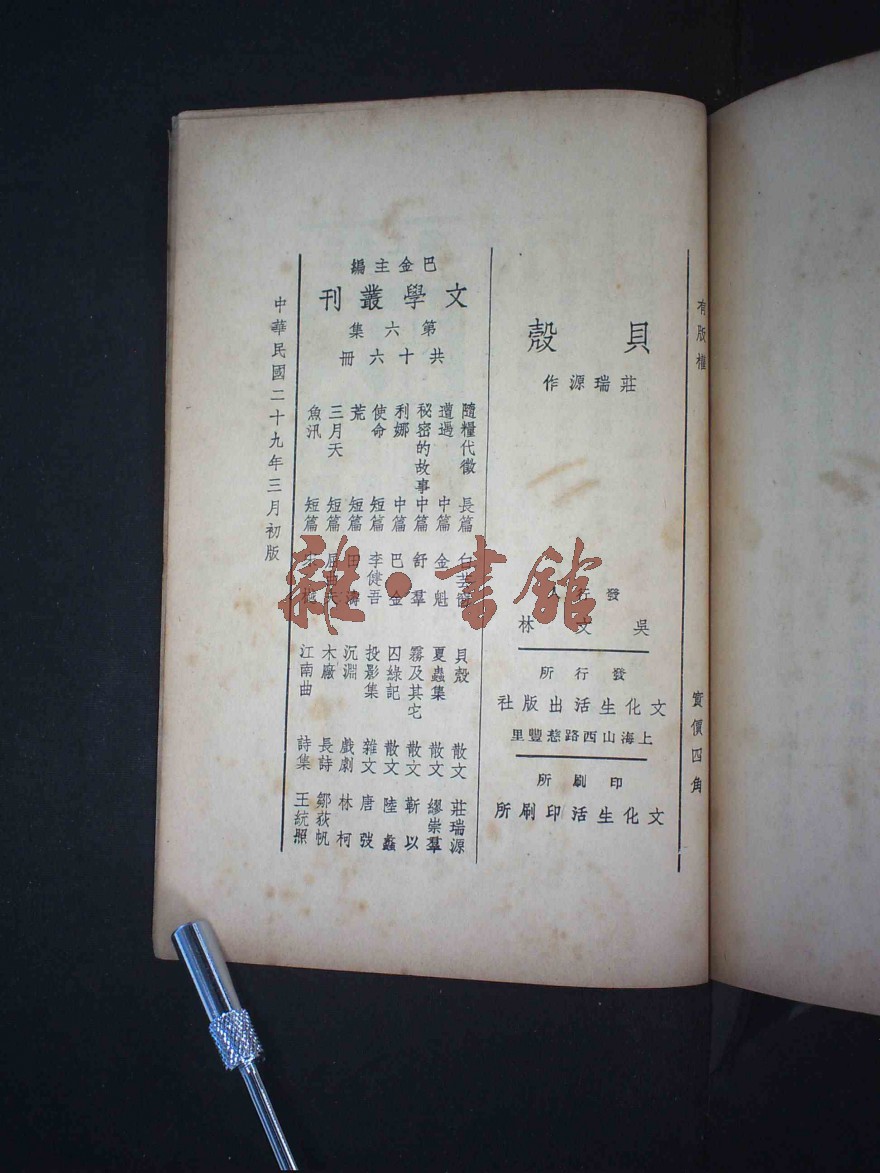 有版權
實價四角
貝殼
莊瑞源作
發行人
吳文林
發行所
文化生活出版社
上海山西路慈豐里
印刷所
文化生活印刷所
巴金主編
文學叢刊
第六集
共十六冊
隨糧代徵 長篇
遭遇 中篇 金魁
秘密的故事 中篇 舒羣
利娜 中篇 巴金
使命 短篇 李健吾
荒 短篇 田濤
三月天 短篇
魚汛 短篇
貝殼 散文 莊瑞源
夏蟲集 散文 繆崇羣
霧及其它 散文 靳以
囚綠記 散文 陸蠡
投影集 雜文 唐弢
沉淵 戲劇 林柯
木廠 長詩 鄒荻帆
江南曲 詩集 王統照
中華民國二十九年三月初版
雜·書館